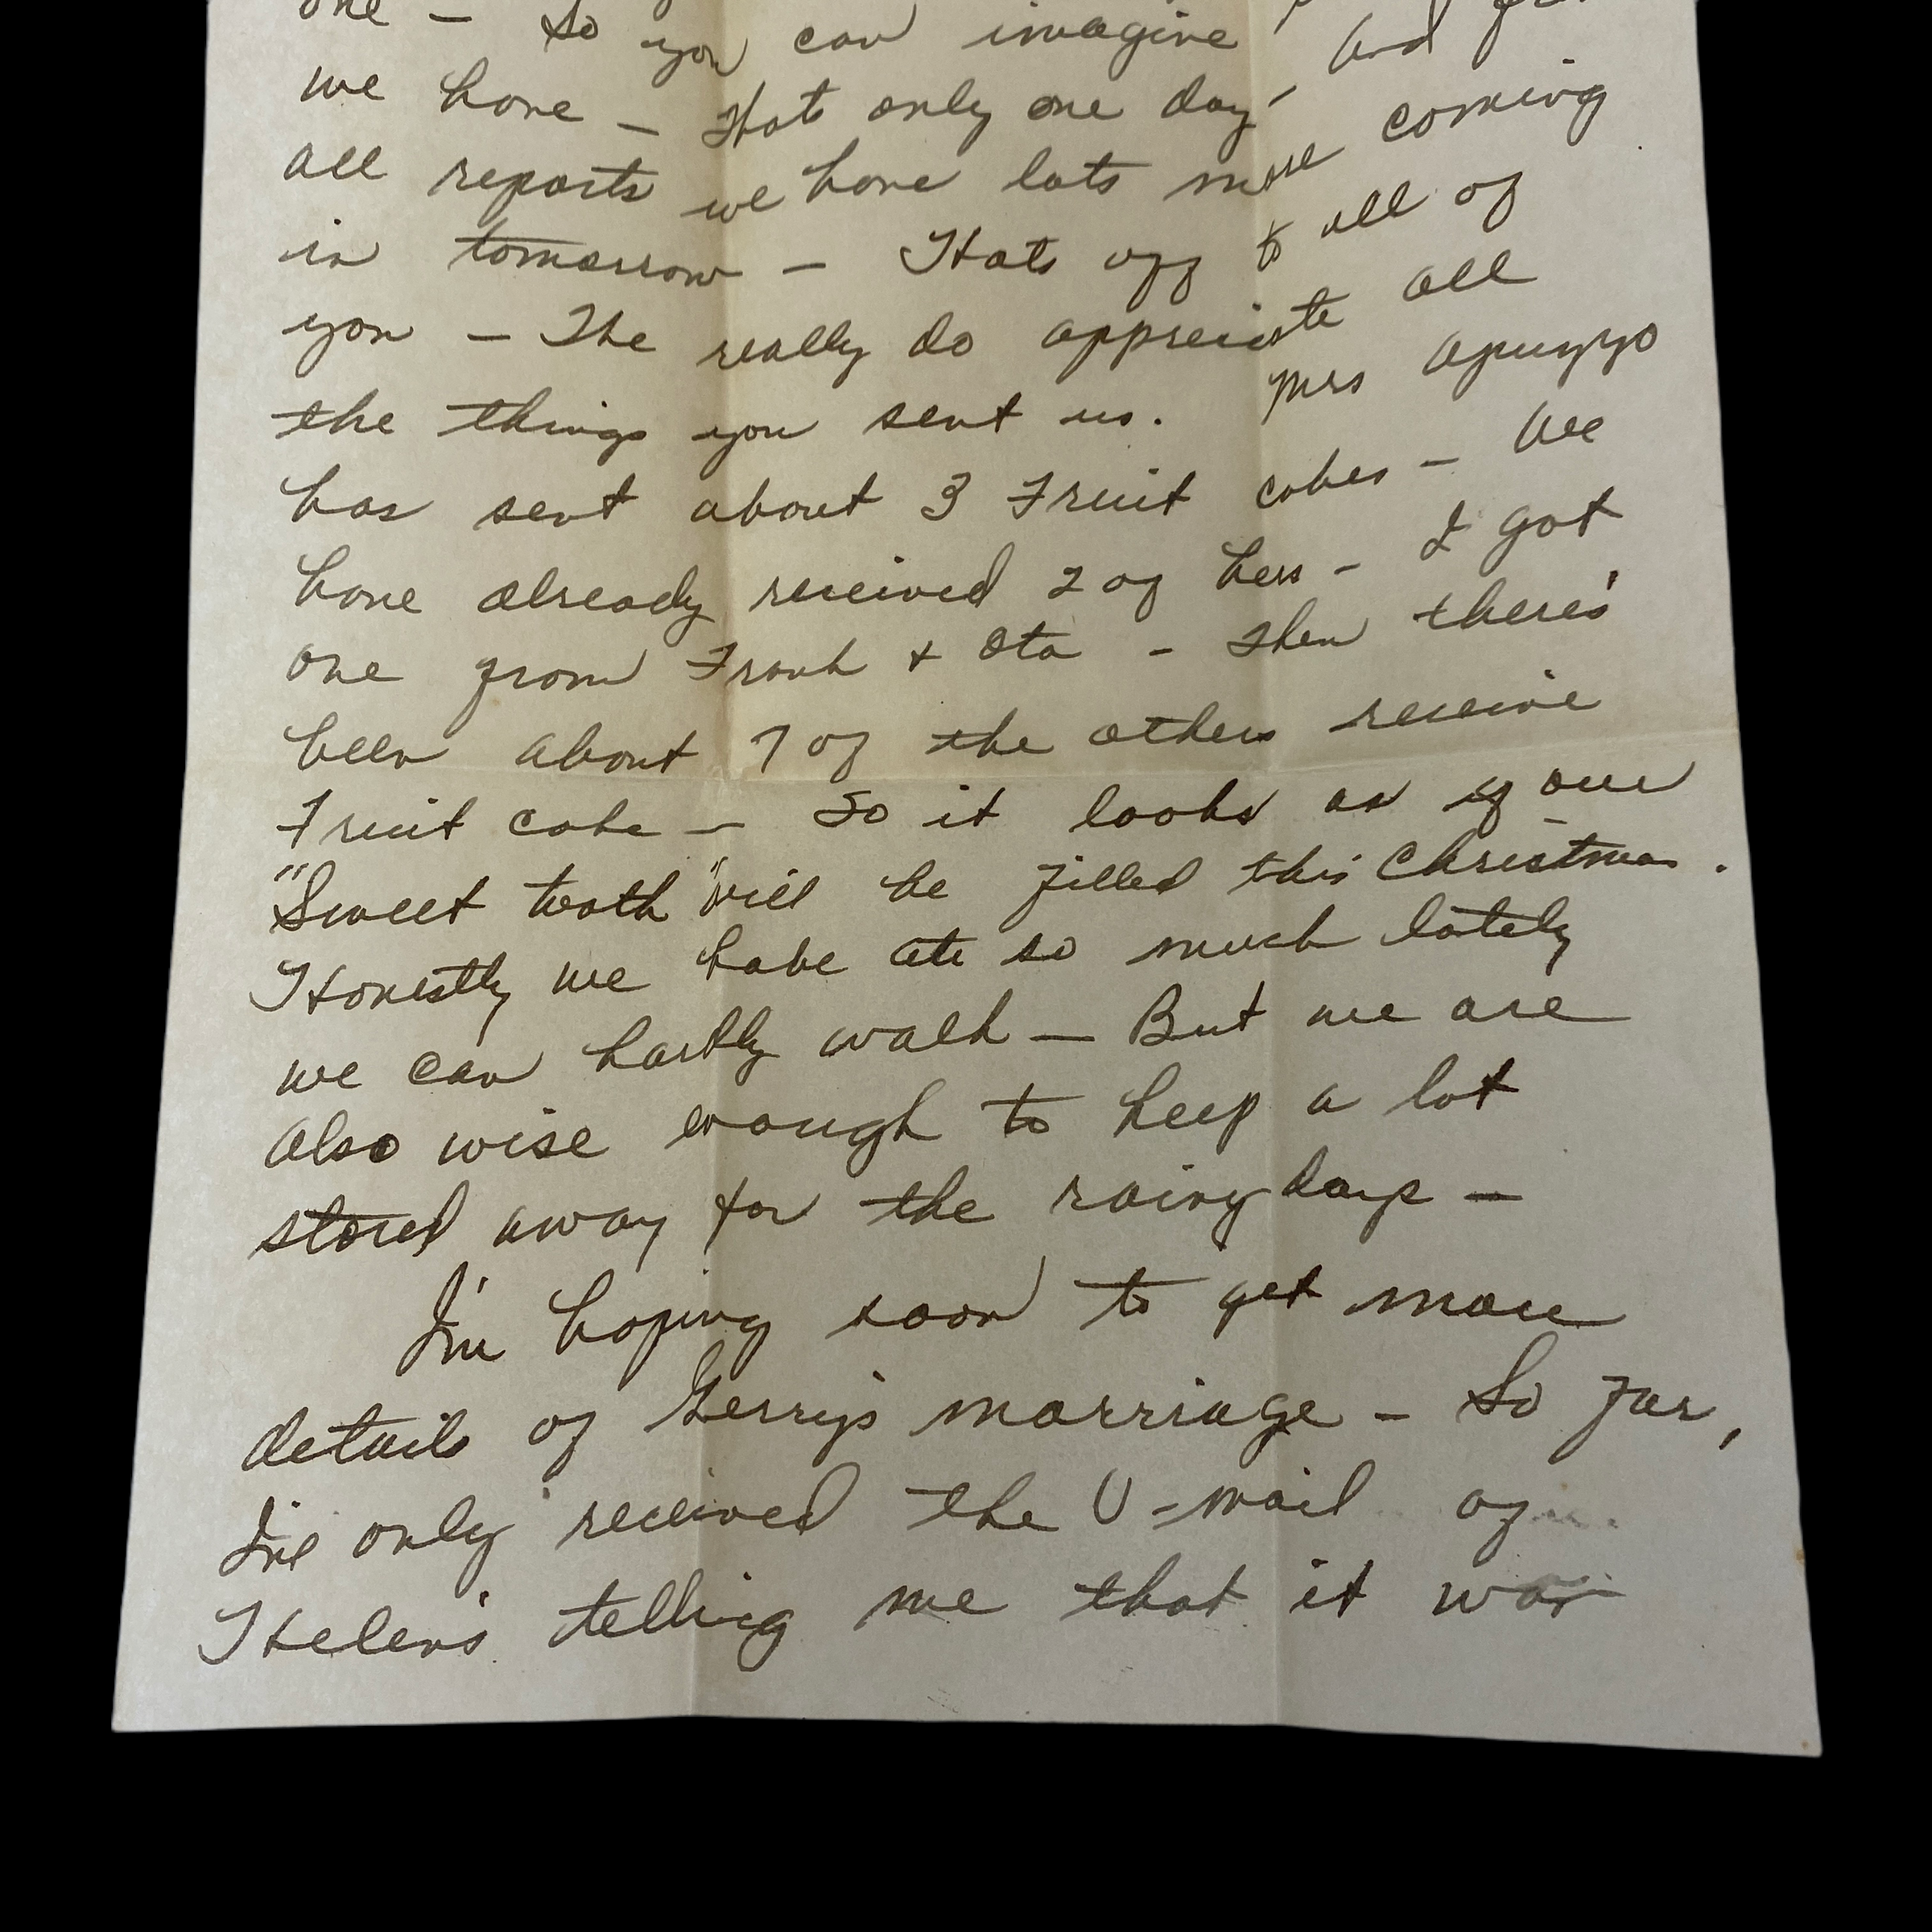 one – So you can imagine
we have – thats only one day' And from
all reports we have lots more coming
in tomorrow – Hats off to all of
you – The really do appreciate all
the things you sent us. Mrs Apuzzo
has sent about 3 Fruit cakes – We
have already received 2 of hers – I got
one from Frank & Eta – Then there's
been about 7 of the others receive
Fruit cake – So it looks as if our
"Sweet tooth" will be filled this Christmas.
Honestly we habe ate so much lately
we can hardly walk – But we are
also wise enough to keep a lot
stored away for the rainy days –
I'm hoping soon to get more
details of Gerry's marriage – So far,
I've only received the V-mail of
Helen's telling me that it was